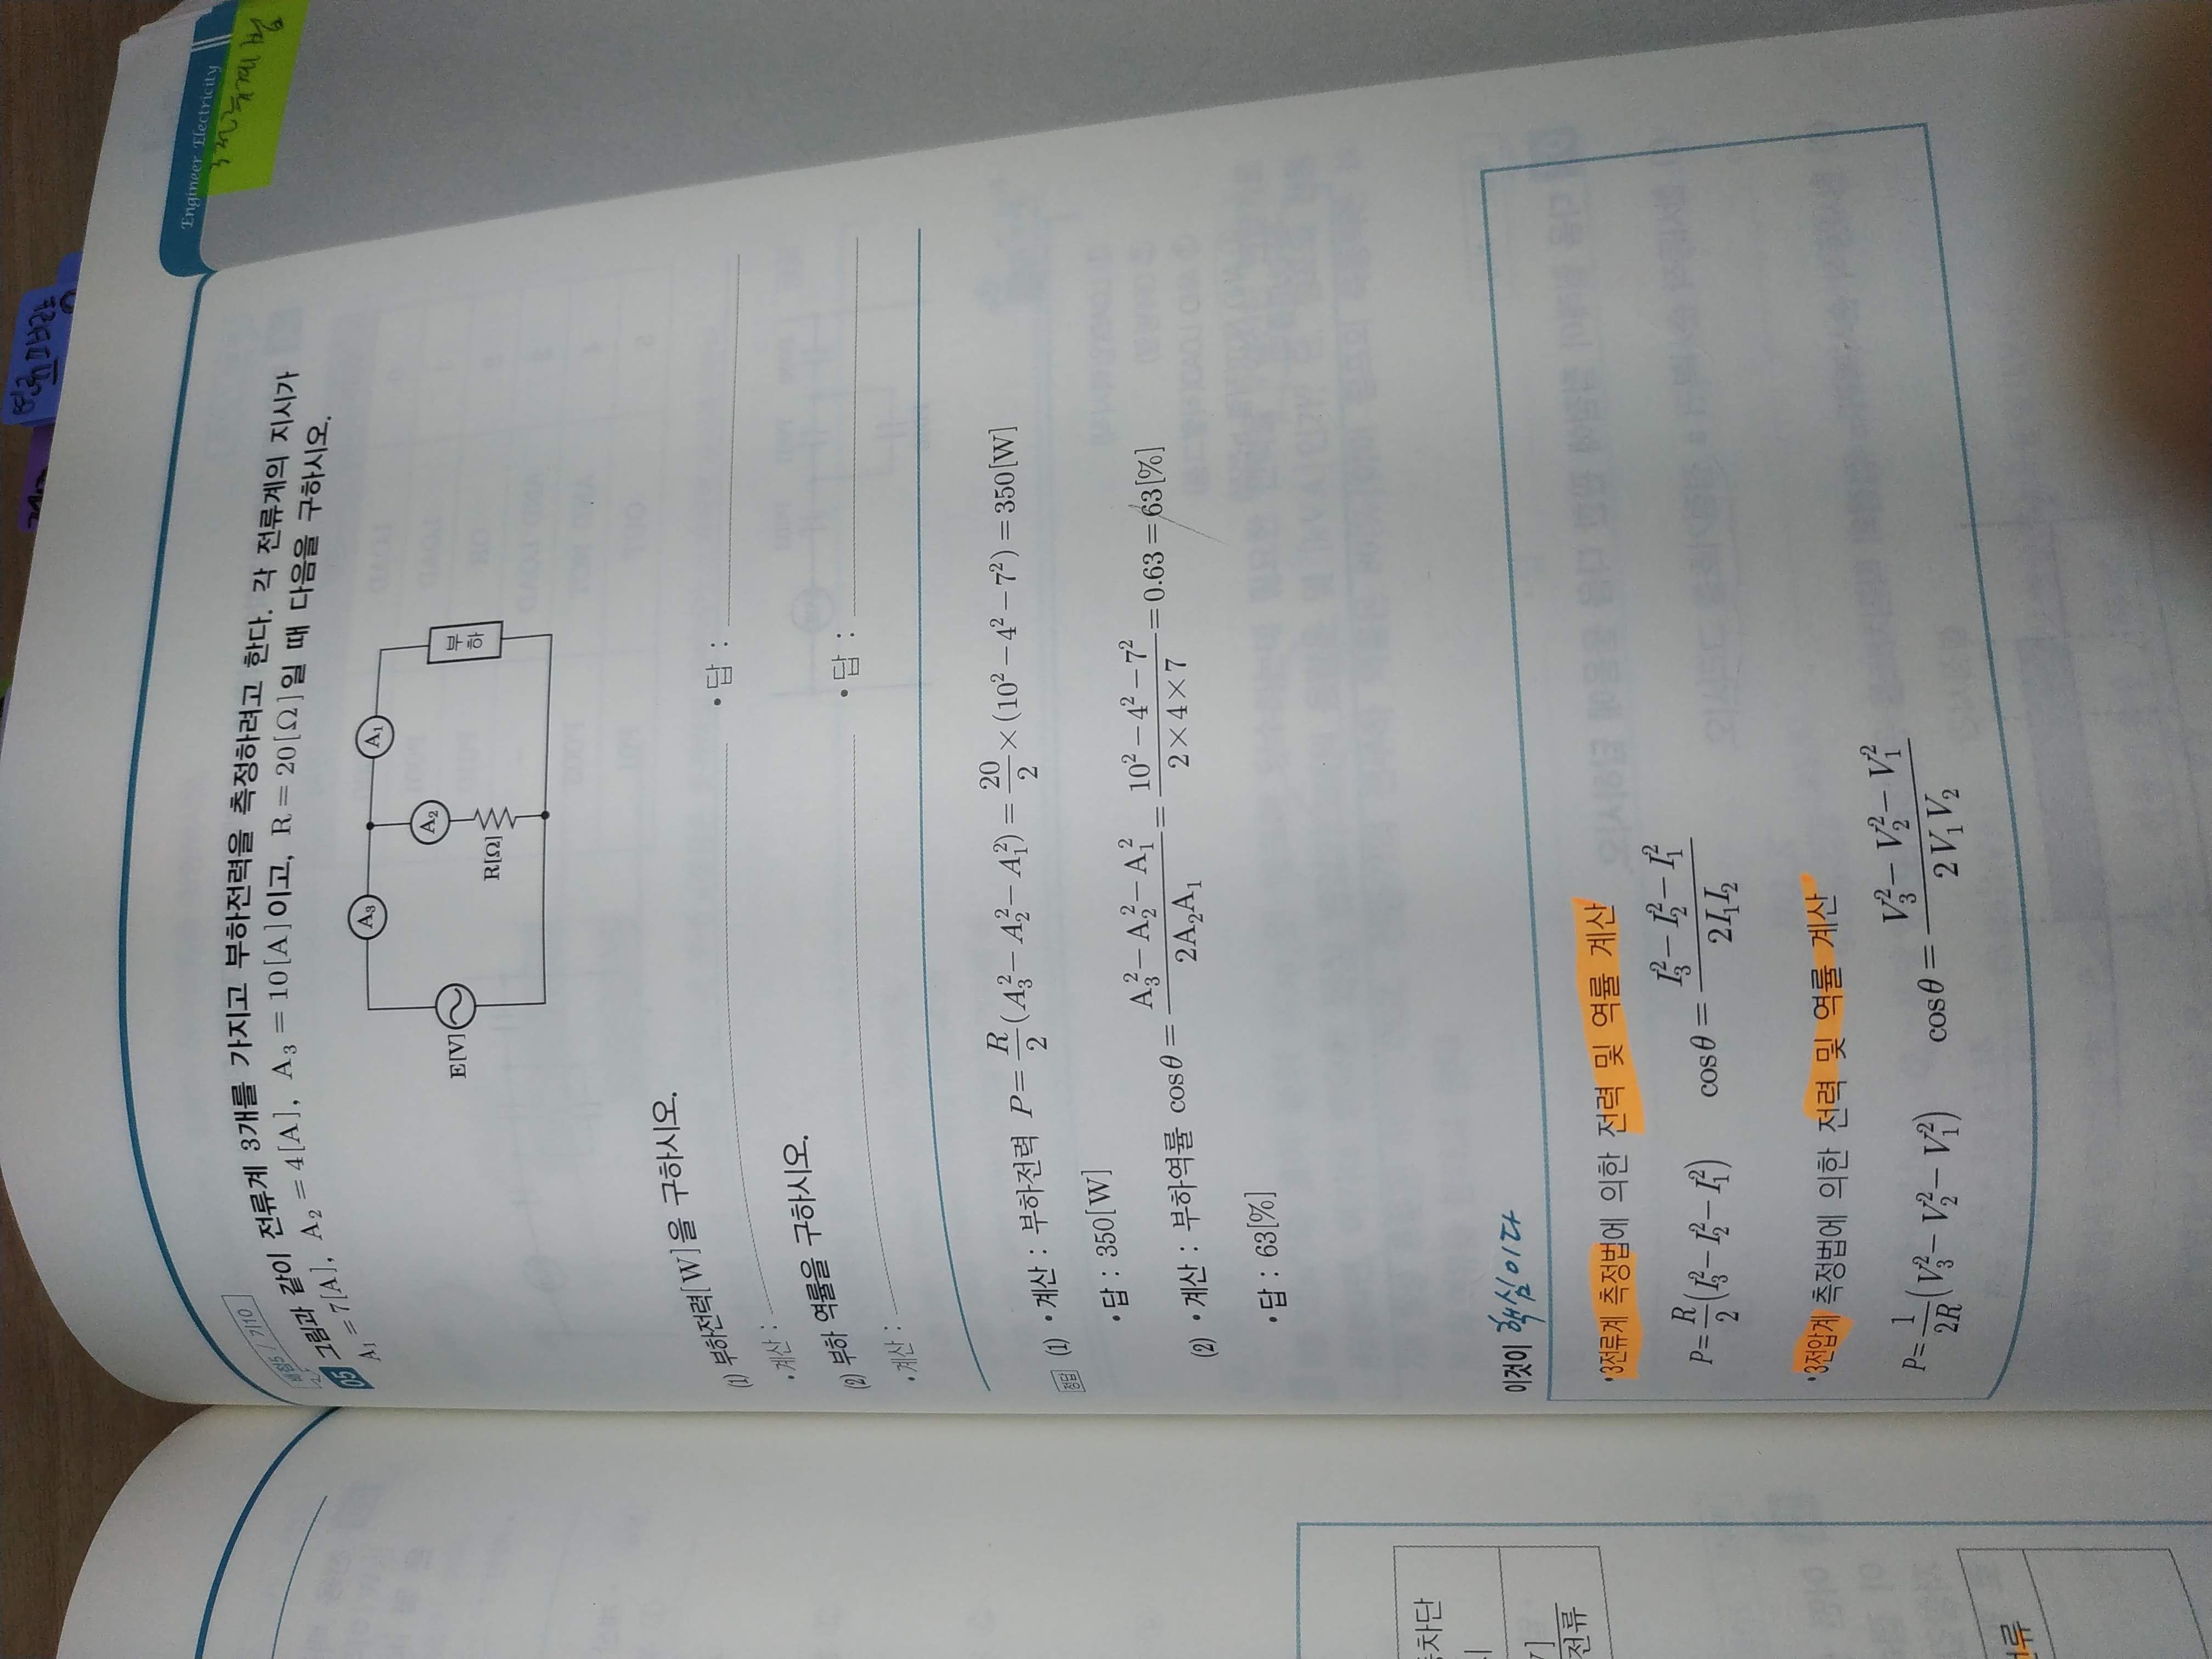 Engineer Electricity
05 그림과 같이 전류계 3개를 가지고 부하전력을 측정하려고 한다. 각 전류계의 지시가
A₁ = 7[A], A₂ = 4[A], A₃ = 10[A]이고, R = 20[Ω]일 때 다음을 구하시오.
A₃ A₁
E[V] A₂ 부하
R[Ω]
(1) 부하전력[W]을 구하시오.
• 계산 : • 답 :
(2) 부하 역률을 구하시오.
• 계산 : • 답 :
정답 (1) • 계산 : 부하전력 P = R/2 (A₃² − A₂² − A₁²) = 20/2 × (10² − 4² − 7²) = 350[W]
• 답 : 350[W]
(2) • 계산 : 부하역률 cosθ = (A₃² − A₂² − A₁²)/(2A₂A₁) = (10² − 4² − 7²)/(2 × 4 × 7) = 0.63 = 63[%]
• 답 : 63[%]
이것이 핵심이다
• 3전류계 측정법에 의한 전력 및 역률 계산
P = R/2 (I₃² − I₂² − I₁²) cosθ = (I₃² − I₂² − I₁²)/(2I₁I₂)
• 3전압계 측정법에 의한 전력 및 역률 계산
P = 1/2R (V₃² − V₂² − V₁²) cosθ = (V₃² − V₂² − V₁²)/(2V₁V₂)
차단
전류